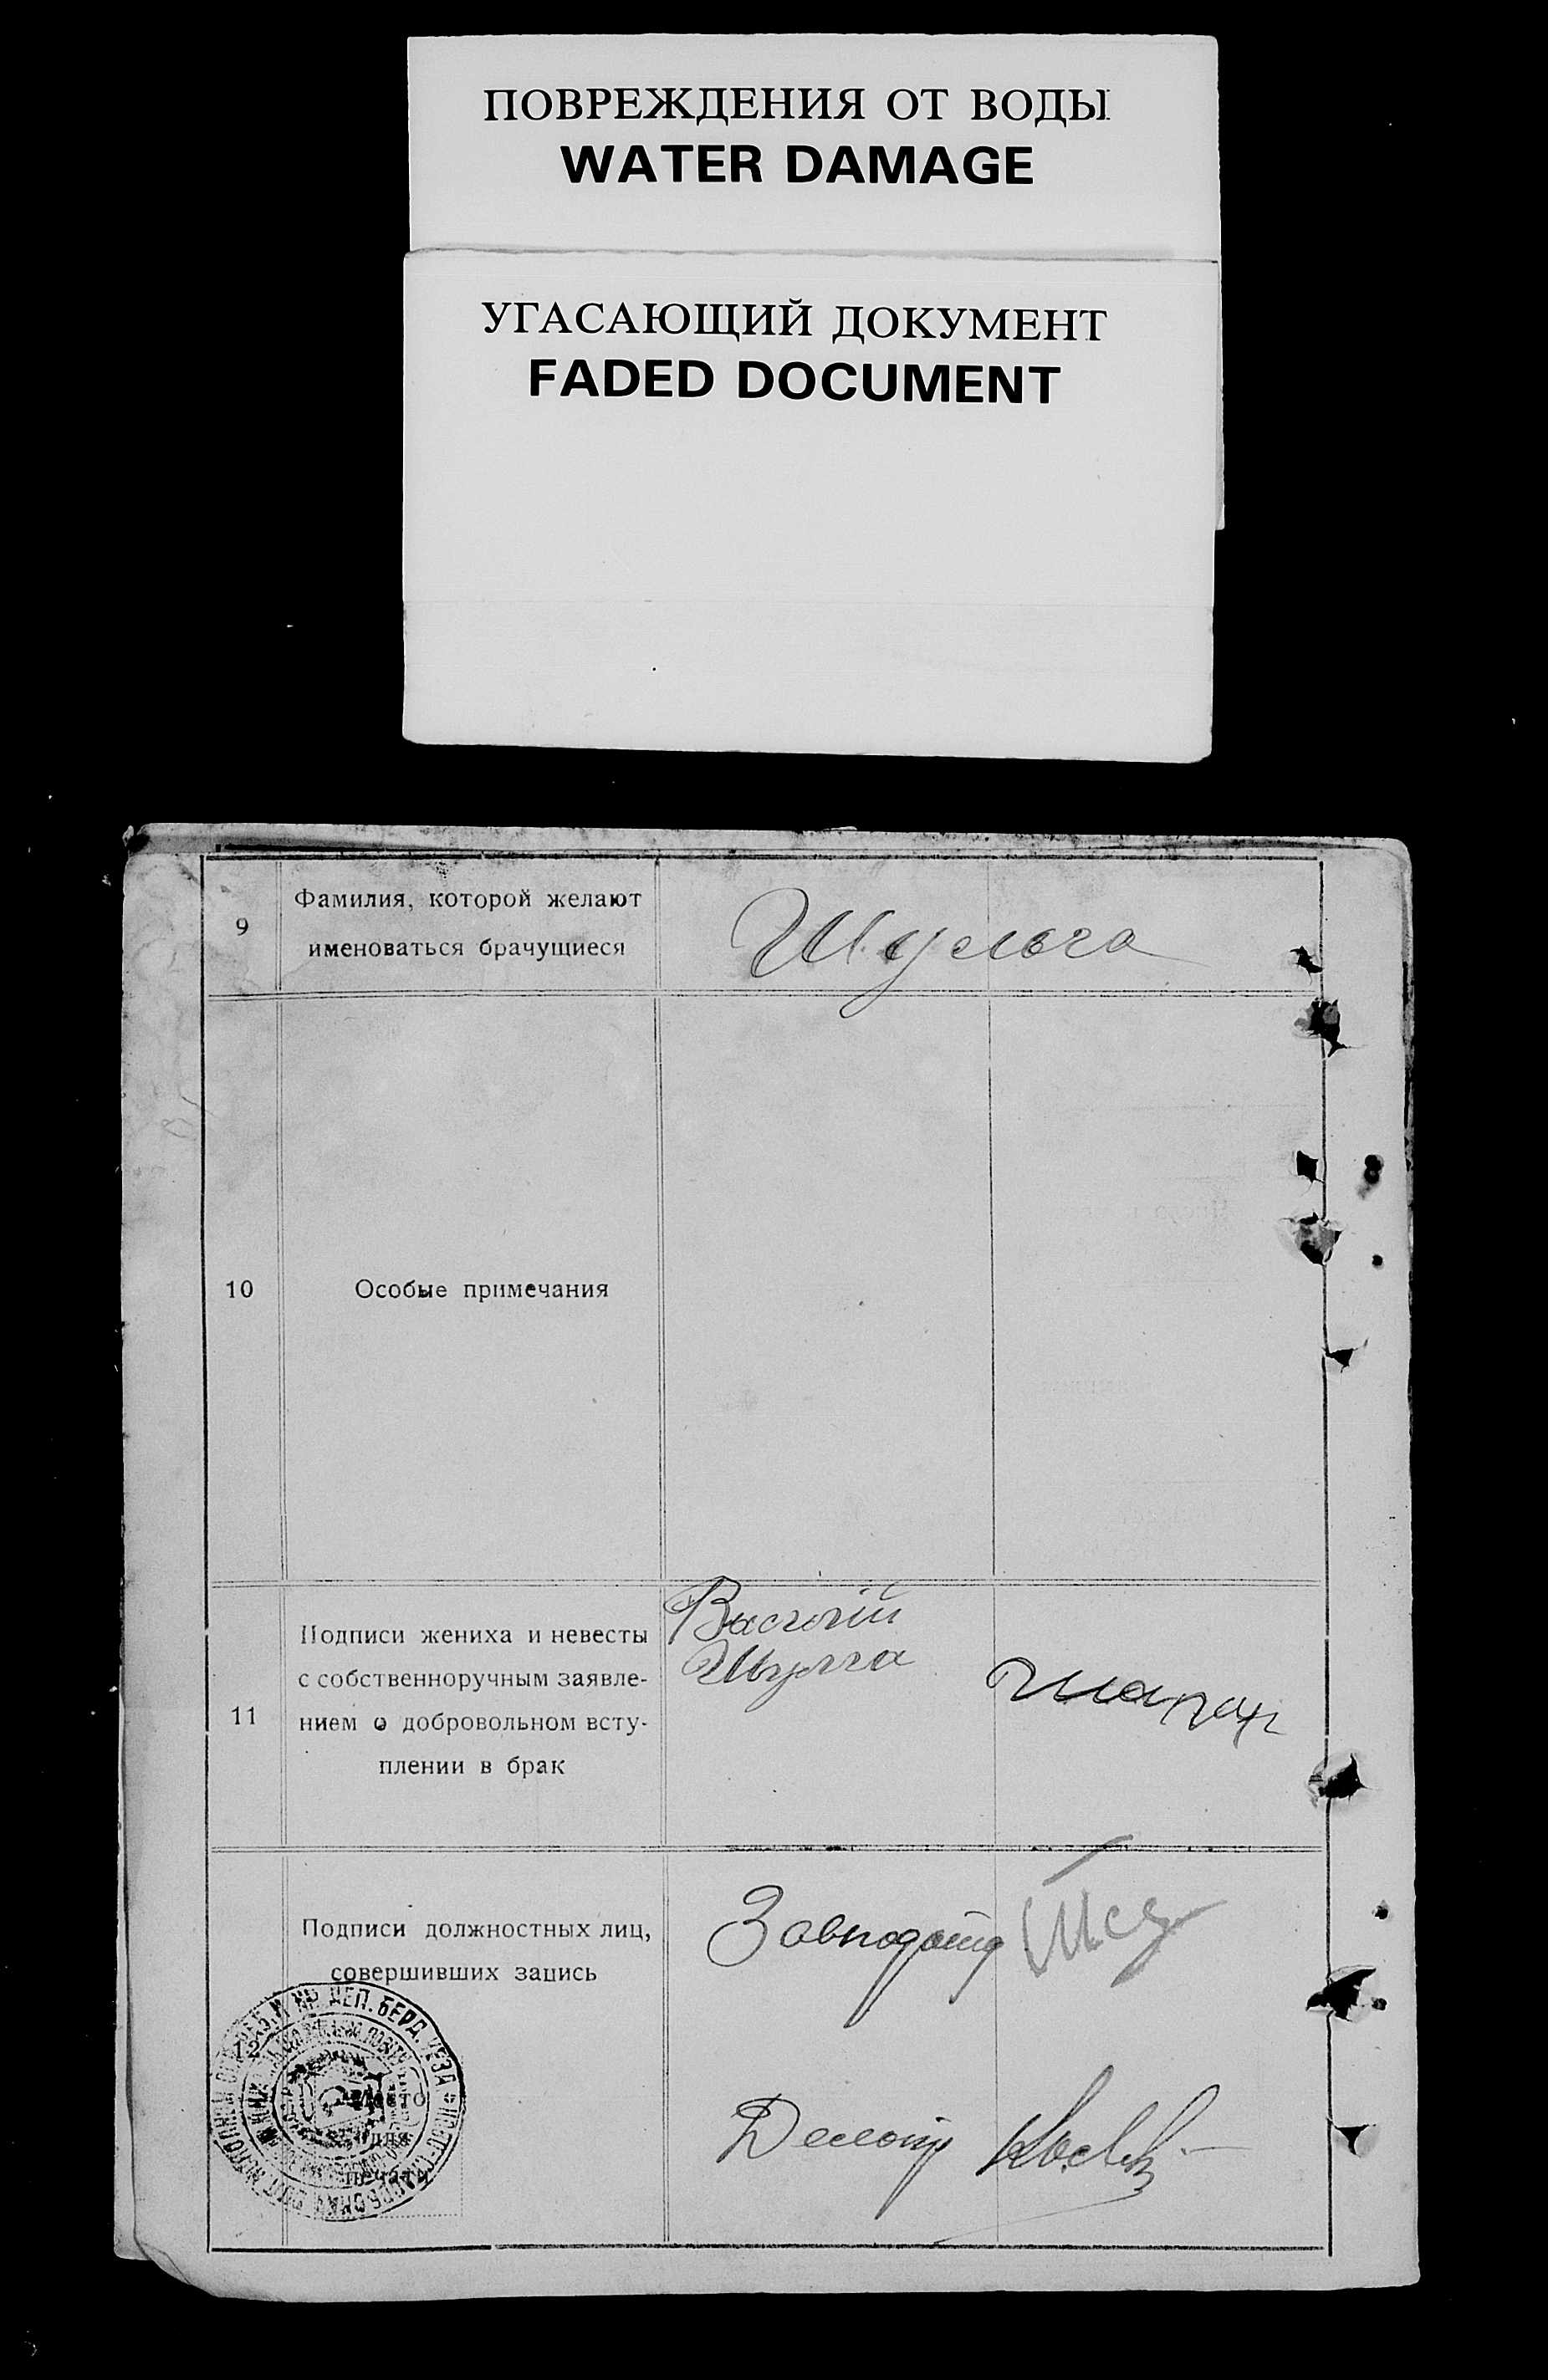 ПОВРЕЖДЕНИЯ ОТ ВОДЫ
WATER DAMAGE
УГАСАЮЩИЙ ДОКУМЕНТ
FADED DOCUMENT
9
Фамилия, которой желают
именоваться брачущиеся
Шульга
10
Особые примечания
11
Подписи жениха и невесты
с собственноручным заявле-
нием о добровольном всту-
плении в брак
Шулга
Подписи должностных лиц,
совершивших запись
12
Завподотд
Делопр
Место
для
печати
ДЕП. БЕРД. УЕЗД